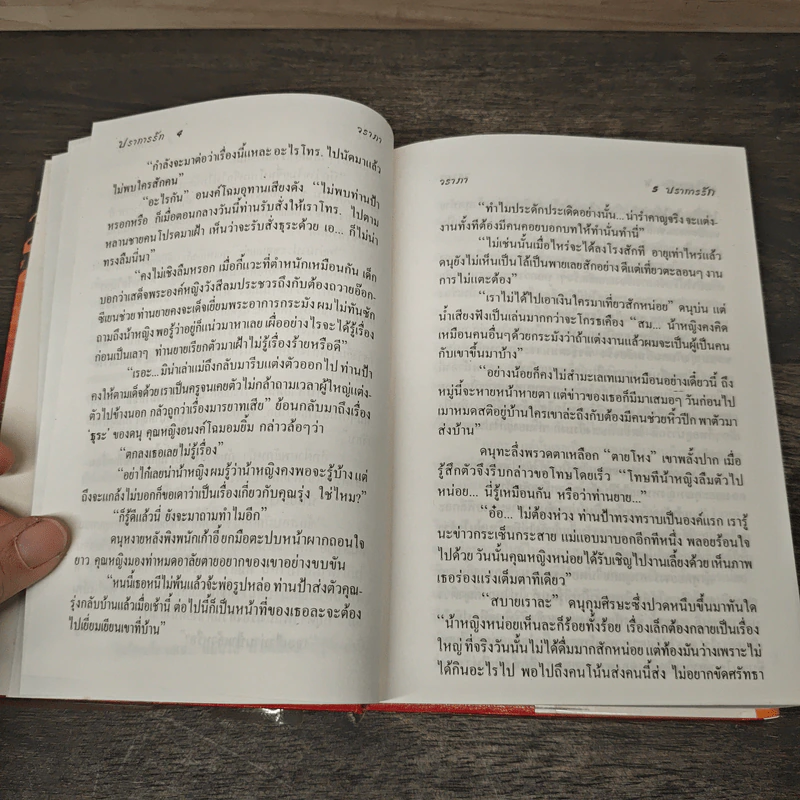 ปราการรัก 4 วราภา
“กำลังจะมาต่อว่าเรื่องนี้แหละ อะไรโทร. ไปนัดมาแล้ว
ไม่พบใครสักคน”
“อะไรกัน” อนงค์โฉมอุทานเสียงดัง “ไม่พบท่านป้า
หรอกหรือ ก็เมื่อตอนกลางวันนี้ท่านรับสั่งให้เราโทร. ไปตาม
หลานชายคนโปรดมาเฝ้า เห็นว่าจะรับสั่งธุระด้วย เอ... ก็ไม่น่า
ทรงลืมนี่นา”
“คงไม่เชิงลืมหรอก เมื่อกี้แวะที่ตำหนักเหมือนกัน เด็ก
บอกว่าเสด็จพระองค์หญิงวังสีลมประชวรถึงกับต้องถวายอ๊อก-
ซิเยนช่วย ท่านยายคงจะเด็จเยี่ยมพระอาการกระมัง ผมไม่ทันซัก
ถามถึงน้าหญิง พอรู้ว่าอยู่ก็แน่วมาหาเลย เผื่ออย่างไรจะได้รู้เรื่อง
ก่อนเป็นเลาๆ ท่านยายเรียกตัวมาเฝ้าไม่รู้เรื่องร้ายหรือดี”
“เรอะ... มิน่าเล่าแม่ถึงกลับมารีบแต่งตัวออกไป ท่านป้า
คงให้ตามเด็จด้วย เราเป็นครูจนเคยตัวไม่กล้าถามเวลาผู้ใหญ่แต่ง-
ตัวไปข้างนอก กลัวถูกว่าเรื่องมารยาทเสีย” ย้อนกลับมาถึงเรื่อง
‘ธุระ’ ของดนุ คุณหญิงอนงค์โฉมอมยิ้ม กล่าวล้อๆว่า
“ตกลงเธอเลยไม่รู้เรื่อง”
“อย่าไก๋เลยน่าน้าหญิง ผมรู้ว่าน้าหญิงคงพอจะรู้บ้าง แต่
ถึงจะแกล้งไม่บอกก็ขอเดาว่าเป็นเรื่องเกี่ยวกับคุณรุ่ง ใช่ไหม?”
“ก็รู้ดีแล้วนี่ ยังจะมาถามทำไมอีก”
ดนุหงายหลังพิงพนักเก้าอี้ยกมือตะปบหน้าผากถอนใจ
ยาว คุณหญิงมองท่าหมดอาลัยตายอยากของเขาอย่างขบขัน
“หนนี้เธอหนีไม่พ้นแล้วจ้ะพ่อรูปหล่อ ท่านป้าส่งตัวคุณ-
รุ่งกลับบ้านแล้วเมื่อเช้านี้ ต่อไปนี้ก็เป็นหน้าที่ของเธอละจะต้อง
ไปเยี่ยมเยียนเขาที่บ้าน”
วราภา 5 ปราการรัก
“ทำไมประดักประเดิดอย่างนั้น... น่ารำคาญจริง จะแต่ง-
งานทั้งทีต้องมีคนคอยบอกบทให้ทำนั่นทำนี่”
“ไม่เช่นนั้นเมื่อไหร่จะได้ลงโรงสักที อายุเท่าไหร่แล้ว
ดนุยังไม่เห็นเป็นโล้เป็นพายเลยสักอย่าง ดีแต่เที่ยวตะลอนๆ งาน
การไม่แตะต้อง”
“เราไม่ได้ไปเอาเงินใครมาเที่ยวสักหน่อย” ดนุบ่น แต่
น้ำเสียงฟังเป็นเล่นมากกว่าจะโกรธเคือง “สม... น้าหญิงคงคิด
เหมือนคนอื่นๆด้วยกระมังว่าถ้าแต่งงานแล้วผมจะเป็นผู้เป็นคน
กับเขาขึ้นมาบ้าง”
“อย่างน้อยก็คงไม่สำมะเลเทเมาเหมือนอย่างเดี๋ยวนี้ ถึง
หมู่นี้จะหายหน้าหายตา แต่ข่าวของเธอก็มีมาเสมอๆ วันก่อนไป
เมาหมดสติอยู่บ้านใครเขาล่ะถึงกับต้องมีคนช่วยหิ้วปีก พาตัวมา
ส่งบ้าน”
ดนุทะลึ่งพรวดตาเหลือก “ตายโหง” เขาพลั้งปาก เมื่อ
รู้สึกตัวจึงรีบกล่าวขอโทษโดยเร็ว “โทษทีน้าหญิงลืมตัวไป
หน่อย... นี่รู้เหมือนกัน หรือว่าท่านยาย...”
“อ๋อ... ไม่ต้องห่วง ท่านป้าทรงทราบเป็นองค์แรก เรารู้
นะข่าวกระเซ็นกระสาย แม่แอบมาบอกอีกทีหนึ่ง พลอยร้อนใจ
ไปด้วย วันนั้นคุณหญิงหน่อยได้รับเชิญไปงานเลี้ยงด้วย เห็นภาพ
เธอร่องแร่งเต็มตาทีเดียว”
“สบายเราละ” ดนุกุมศีรษะซึ่งปวดหนึบขึ้นมาทันใด
“น้าหญิงหน่อยเห็นละก็ร้อยทั้งร้อย เรื่องเล็กต้องกลายเป็นเรื่อง
ใหญ่ ที่จริงวันนั้นไม่ได้ดื่มมากสักหน่อย แต่ท้องมันว่างเพราะไม่
ได้กินอะไรไป พอไปถึงคนโน้นส่งคนนี้ส่ง ไม่อยากขัดศรัทธา